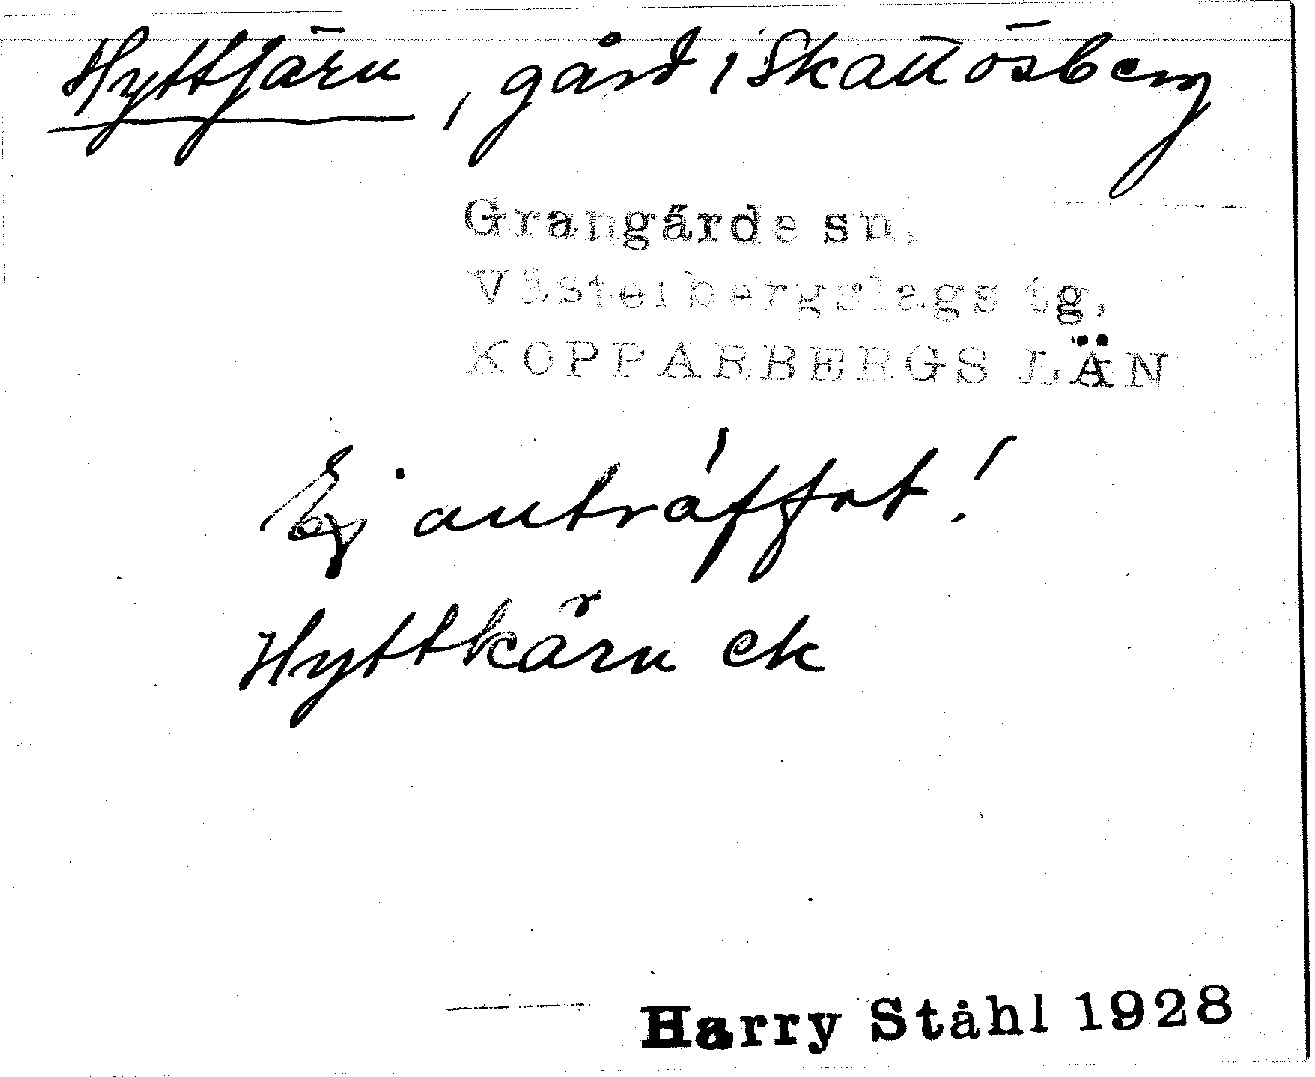 Hyttjärn, gård i Skattlösberg
Grangärde sn,
Västerbergslags tg,
KOPPARBERGS LÄN
Ej anträffat!
Hyttkärn ek
Harry Ståhl 1928